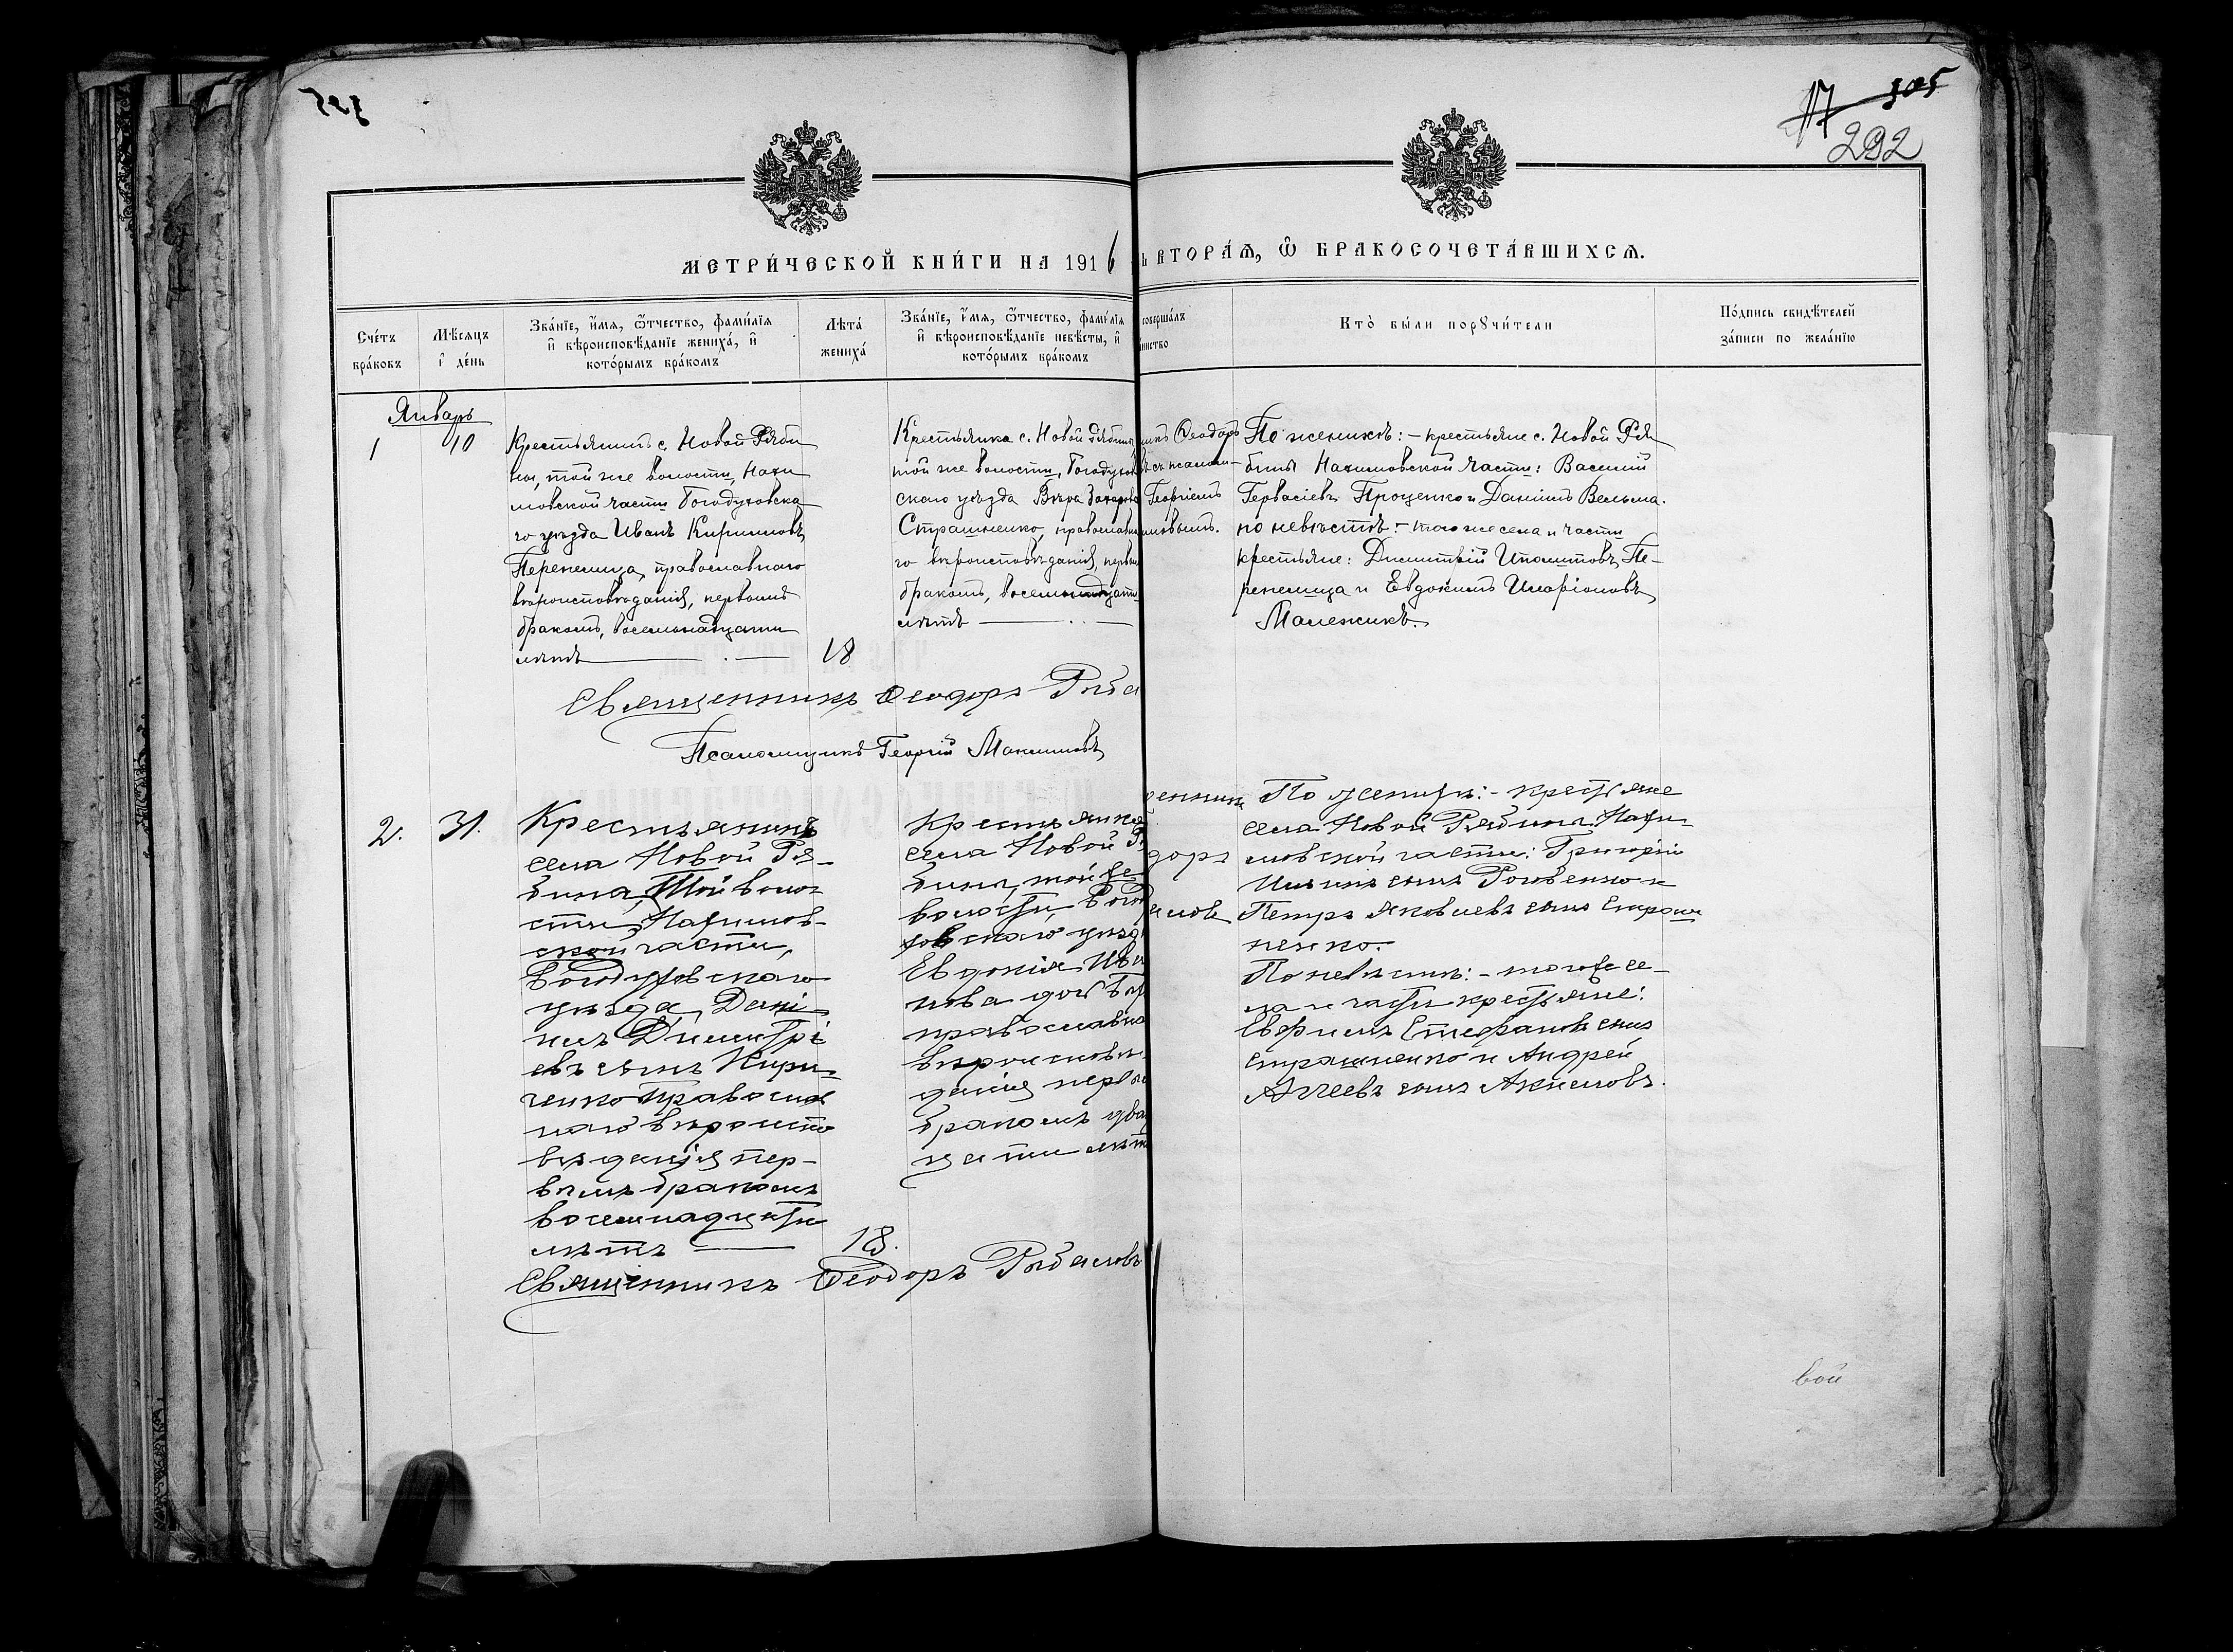 305
117 305
292
МЕТРИ́ЧЕСКОЙ КНИ́ГИ НА 1916
ВТОРА́Ѧ, Ѿ БРАКОСОЧЕТА́ВШИХСѦ.
Сче́тъ
бра́ковъ
Мѣ́сяцъ
и҆ де́нь
Зва́нїе, и҆́мѧ, ѻ҆́тчество, фами́лїѧ
и҆ вѣроисповѣ́данїе жениха̀, и҆
кото́рымъ бра́комъ
Лѣта̀
жениха̀
Зва́нїе, и҆́мѧ, ѻ҆́тчество, фами́лїѧ
и҆ вѣроисповѣ́данїе невѣ́сты, и҆
кото́рымъ бра́комъ
соверша́лъ
Кто̀ бы́ли порꙋчи́тели
По́дпись свидѣ́телей
за́писи по жела́нїю
Январь
1
10
Крестьянинъ с. Новой Ряби
ны, той же волости, Нахи
мовской части Богодуховска
го уѣзда Иванъ Кирилловъ
Перепелица, православнаго
вѣроисповѣданія, первымъ
бракомъ, восемьнадцати
лѣтъ
18
Крестьянка с. Новой Рябины
той же волости, Богодухов
скаго уѣзда Вѣра Захарова
Страшненко, православна
го вѣроисповѣданія, первым
бракомъ, восемьнадцати
лѣтъ
Ѳеодоръ
съ псалом-
Георгіемъ
По женихѣ: - крестьяне с. Новой Ря
бины Нахимовской части: Василій
Гервасіевъ Проценко и Даніилъ Вельма.
по невѣстѣ: - того же села и части
крестьяне: Димитрій Ипполитовъ Пе-
репелица и Евдокимъ Иларіоновъ
Малежикъ.
Священникъ Ѳеодоръ Рыба
Псаломщикъ Георгій Максимовъ
2.
31.
Крестьянинъ
села Новой Ря-
бина, Той воло-
сти, Нахимов-
ской части,
Богодуховскаго
уѣзда, Дані
илъ Димитрі
евъ сынъ Кири-
ченко Православ
наго вѣроиспо
вѣданія пер-
вымъ бракомъ
восемнадцати
лѣтъ
18.
Крестьянка
села Новой Р
бины, той же
волости, Бого
ховскаго уѣзд
Евдокія Ива
нова доч
православна
вѣроисповѣ
данія первы
бракомъ два
цати лѣт
енникъ
доръ
аловъ
По женихѣ: - крестьяне
села Новой Рябины Нахи-
мовской части: Григорій
сынъ Роговенко и
Петръ Яковлевъ сынъ Страш
ненко.
По невѣстѣ: - того же се-
ла и части крестьяне:
Ефримъ Стефановъ сынъ
Страшненко и Андрей
Аггеевъ сынъ Акимовъ.
Священникъ Ѳеодоръ Рыбаловъ
вой